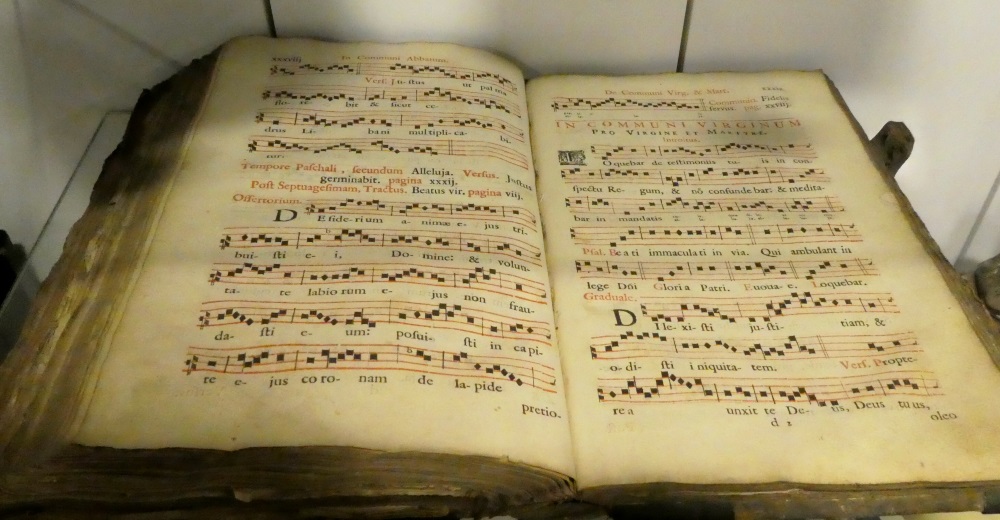 xxxviij In Communi Abbatum.
Vers. Ju- stus ut palma
flo- re- bit & sicut ce-
drus Li- bani multipli-ca- bi-
tur.
Tempore Paschali, secundum Alleluja. Versus. Justus
germinabit. pagina xxxij.
Post Septuagesimam, Tractus. Beatus vir. pagina viij.
Offertorium.
DEside-rium a- nimæ e- jus tri-
bui- sti e- i, Do- mine: & volun-
ta- te labio rum e- jus non frau-
da- sti e- um: posui- sti in capi-
te e- jus coro- nam de la-pide
pretio.
De Communi Virg. & Mart. xxxix.
Communio. Fidelis
servus. pag. xxviij.
IN COMMUNI VIRGINUM
PRO VIRGINE ET MARTYRE.
Introitus.
LOquebar de testimoniis tu- is in con-
spectu Re- gum, & nō confundebar: & medita-
bar in mandatis
Psal. Beati immaculati in via. Qui ambulant in
lege Dñi Gloria Patri. Euouae. Loquebar.
Graduale.
DIle-xi-sti ju-sti- tiam, &
o-di- sti iniquita- tem. Vers. Propte-
rea unxit te De- us, Deus tuus,
d 2 oleo